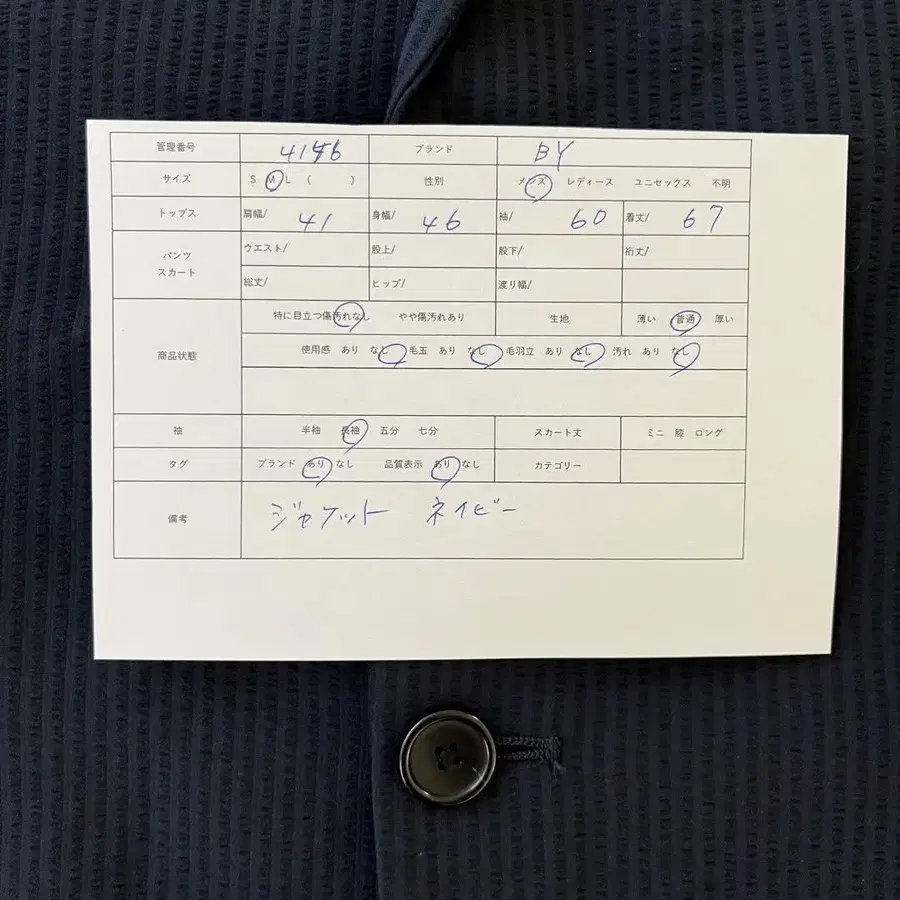 管理番号 ブランド BY
サイズ S M L ( ) 性別 メンズ レディース ユニセックス 不明
トップス 肩幅/ 41 身幅/ 46 袖/ 60 着丈/ 67
パンツ ウエスト/ 股上/ 股下/ 裄丈/
スカート 総丈/ ヒップ/ 渡り幅/
特に目立つ傷汚れなし やや傷汚れあり 生地 薄い 普通 厚い
商品状態 使用感 あり なし 毛玉 あり なし 毛羽立 あり なし 汚れ あり なし
袖 半袖 長袖 五分 七分 スカート丈 ミニ 膝 ロング
タグ ブランド あり なし 品質表示 あり なし カテゴリー
備考 ジャケット ネイビー